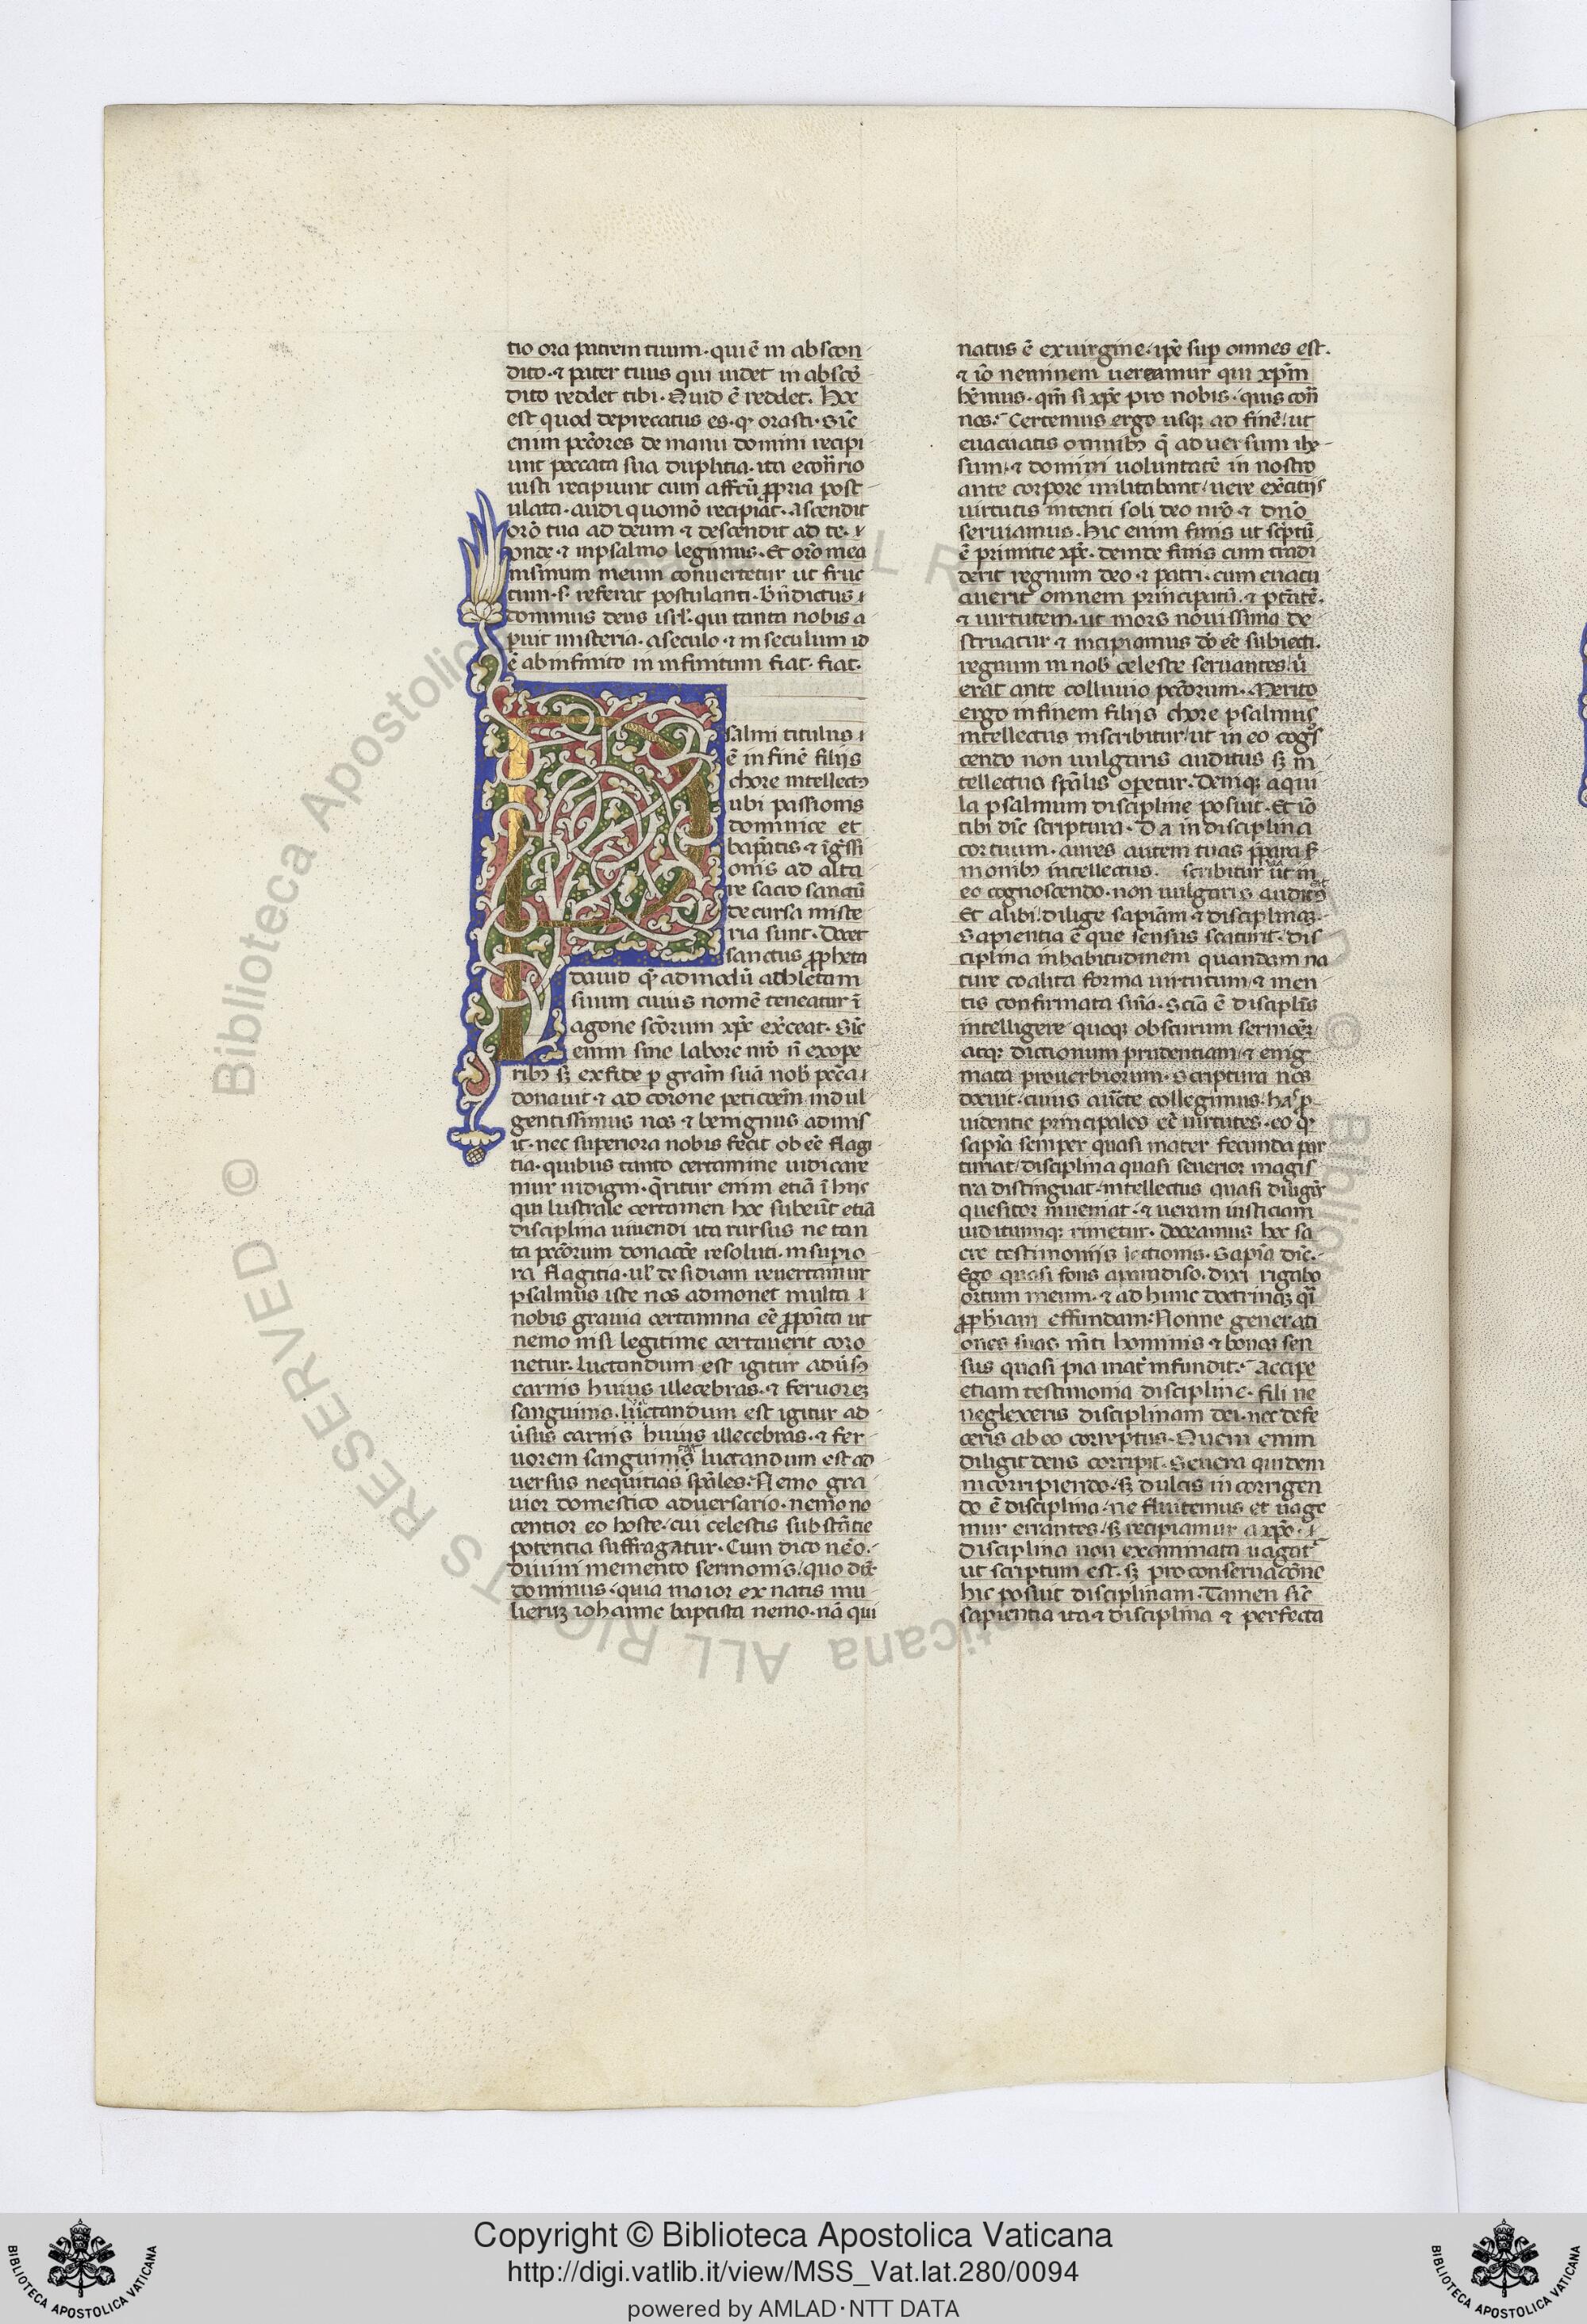 tio ora patrem tuum · qui ē in abscon
dito · ⁊ pater tuus qui uidet in abscō
dito reddet tibi · Quid ē reddet · hoc
est quod deprecatus es · qđ orasti · Sic̄
enim pecc̄ores de manu domini recipi
unt peccata sua duplitia · ita econr̄rio
iusti recipiunt cum affectū ꝓpria post
ulata · audi quomō recipiāt · ascendit
orō tua ad deum ⁊ descendit ad te ·
onde · ⁊ in psalmo legimus · Et orō mea
in sinum meum conuertetur ut fruc
tum · s · referat postulanti · bn̄dictus
dominus deus isrl̄ · qui tanta nobis a
peruit misteria · a seculo · ⁊ in seculum id
ē ab infinito in infinitum fiat · fiat ·
P
salmi titulus
ē in finē filijs
chore intellectꝰ
ubi passionis
dominice et
bap̄tatis ⁊ īgr̄ssi
onis ad alta
re sacro sanctū
decursa miste
ria sunt · Docet
sanctus ꝓpheta
dauid qđ ad modū adhletam
suum cuius nomē teneatur ī
agone sc̄orum xp̄c ex̄ceat · Sic̄
enim sine labore nr̄o n̄ ex ope
ribꝫ sꝫ ex fide ꝑ grām̄ suā nob̄ pcc̄a
donauit · ⁊ ad corone peticōem̄ indul
gentissimus nos ⁊ benignus admis
it · nec superiora nobis fecit ob eē̄ flagi
tia · quibus tanto certamine iudicare
mur indigni · q̄ritur enim etiā ī hijs
qui lustrale certamen hoc subeūt etiā
disciplina uiuendi ita rursus ne tan
ta pecc̄orum donacōe resoluti · in supio
ra flagitia · ul̄ desidiam reuertamur
psalmus iste nos admonet multa
nobis grauia certamina eē̄ ꝓpoīta ut
nemo nisi legitime certauerit coro
netur · luctandum est igitur adūsꝫ
carnis huius illecebras · ⁊ feruorez
sanguinis · luctandum est igitur ad
ūsus carnis huius illecebras · ⁊ fer
uorem sanguinis luctandum est ad
uersus nequitias spāles · Nemo gra
uior domestico aduersario · nemo no
centior eo hoste / cui celestis substātie
potentia suffragatur · Cum dico nēo ·
diuini memento sermonis / quo dix̄
dominus · quia maior ex natis mu
lierꝫ iohanne baptista nemo · nā qui
natus ē ex uirgine · ip̄e sup omnes est ·
⁊ iō neminem uereamur qui xp̄m
hēmus · qm̄ si xp̄c pro nobis · quis con̄
nos · Certemus ergo usqꝫ ad finē / ut
euacuatis omnibꝫ q̄ aduersum ihe
sum · ⁊ domini uoluntatē in nostro
ante corpore militabant / uere exercitijs
uirtutis intenti soli deo nr̄o ⁊ dn̄o
seruiamus · hic enim finis ut scptū
ē primitie xp̄c · deinde finis cum tradi
derit regnum deo · ⁊ patri · cum euacu
auerit omnem principatū · ⁊ ptātē ·
⁊ uirtutem · ut mors nouissima de
struatur ⁊ incipiamus dō eē̄ subiecti ·
regnum in nob̄ celeste seruantes / ū
erat ante colluuio pecc̄orum · Merito
ergo in finem filijs chore psalmus
intellectus inscribitur / ut in eo cogs̄
cendo non uulgaris auditus sꝫ in
tellectus spālis operetur · Deniqꝫ aqui
la psalmum discipline posuit · Et iō
tibi dic̄ scriptura · Da in disciplina
cor tuum · aures autem tuas p̄para s̄
monibꝫ intellectus · scribitur ut in
eo cognoscendo · non uulgaris auditꝰ
Et alibi / dilige sapiām ⁊ disciplinaꝫ ·
Sapientia ē que sensus scaturit · dis
ciplina in habitudinem quandam na
ture coalita forma uirtutum / ⁊ men
tis confirmata snīa · Scīa ē disciplīs
intelligere quoqꝫ obscurum sermōeꝫ
atqꝫ dictionum prudentiam / ⁊ enig
mata prouerbiorum · Scriptura nos
docuit · cuius auc̄te collegimus / has ꝓ
uidentie principales eē̄ uirtutes · eo qđ
sapīa semper quasi mater fecunda par
turiat / disciplina quasi seuerior magis
tra distinguat · intellectus quasi diligēs
quesitor inueniat · ⁊ ueram iusticiam
iudiciumqꝫ rimetur · doceamus hec sa
cre testimonijs lectionis · Sapīa dic̄ ·
Ego quasi fons a paradiso · dixi rigabo
ortum meum · ⁊ ad hunc doctrinaꝫ qī
ꝓphiam effundam · Nonne generati
ones suas m̄ti hominis ⁊ bonos sen
sus quasi pia mat̄ infundit · Accipe
etiam testimonia discipline · fili ne
neglexeris disciplinam dei · nec defe
ceris ab eo correptus · Quem enim
diligit deus corripit · Seuera quidem
in corripiendo · sꝫ dulcis in corrigen
do ē disciplina · ne fluitemus et uage
mur errantes / sꝫ recipiamur a xp̄o ·
disciplina non exanimata uagat̄
ut scriptum est · sꝫ pro conseruacōne
hic posuit disciplinam · Tamen sic̄
sapientia ita ⁊ disciplina ⁊ perfecta
Copyright © Biblioteca Apostolica Vaticana
http://digi.vatlib.it/view/MSS_Vat.lat.280/0094
powered by AMLAD·NTT DATA
BIBLIOTECA APOSTOLICA VATICANA
BIBLIOTECA APOSTOLICA VATICANA